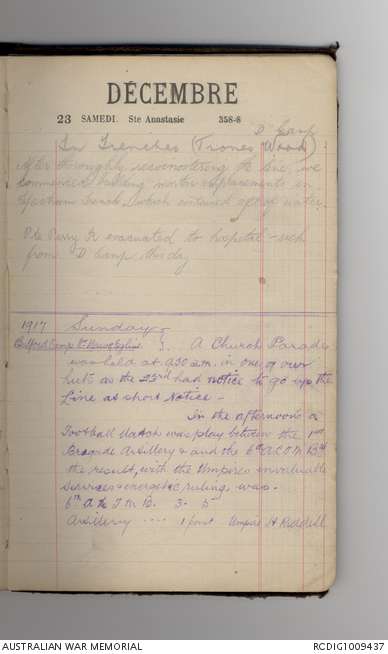 DÉCEMBRE
23 SAMEDI. Ste Anastasie 358-8
"D" Camp
In Trenches (Trones Wood)
After thoroughly reconnoitering the line, we
commenced building mortar emplacements in
trench, which contained of water.
Pte Parry evacuated to hospital - sick
from "D" Camp this day
1917 Sunday
Camp A Church Parade
was held at 9.30 a.m. in one of our
huts as the 23rd had notice to go up the
Line at short Notice -
In the afternoon a
Football Match was play between the 1st
Brigade Artillery & and the 6th
the result, with the Umpires invaluable
services & energetic ruling was -
6th A L T M B. 3. 5
Artillery .... 1 point Umpire H Riddell
AUSTRALIAN WAR MEMORIAL
RCDIG1009437